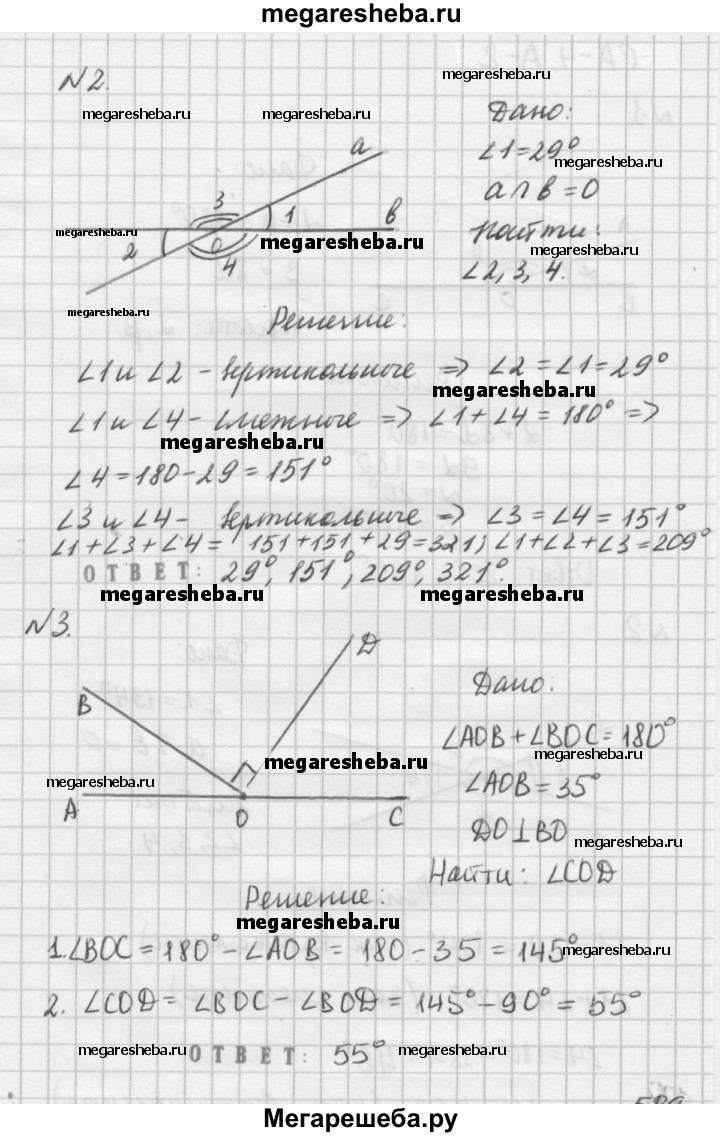 megaresheba.ru
N2.
megaresheba.ru
megaresheba.ru megaresheba.ru
Дано:
∠1=29°
megaresheba.ru
a∩b=0
Найти:
megaresheba.ru
∠2, 3, 4.
a
3
1
b
megaresheba.ru
megaresheba.ru
2
0
4
megaresheba.ru
Решение:
∠1 и ∠2 - вертикальные => ∠2=∠1=29°
megaresheba.ru
∠1 и ∠4 - смежные => ∠1+∠4=180° =>
megaresheba.ru
∠4=180-29=151°
∠3 и ∠4 - вертикальные => ∠3=∠4=151°
∠1+∠3+∠4= 151+151+29=321; ∠1+∠2+∠3=209°
ОТВЕТ: 29°, 151°, 209°, 321°.
megaresheba.ru megaresheba.ru
N3.
D
B
megaresheba.ru
megaresheba.ru
A O C
Дано:
∠AOB+∠BOC=180°
∠AOB=35°
DO⊥BO
megaresheba.ru
Найти: ∠COD
Решение:
megaresheba.ru
1.∠BOC=180°-∠AOB=180-35=145°
megaresheba.ru
2. ∠COD=∠BOC-∠BOD=145°-90°=55°
megaresheba.ru ОТВЕТ: 55° megaresheba.ru
Мегарешеба.ру